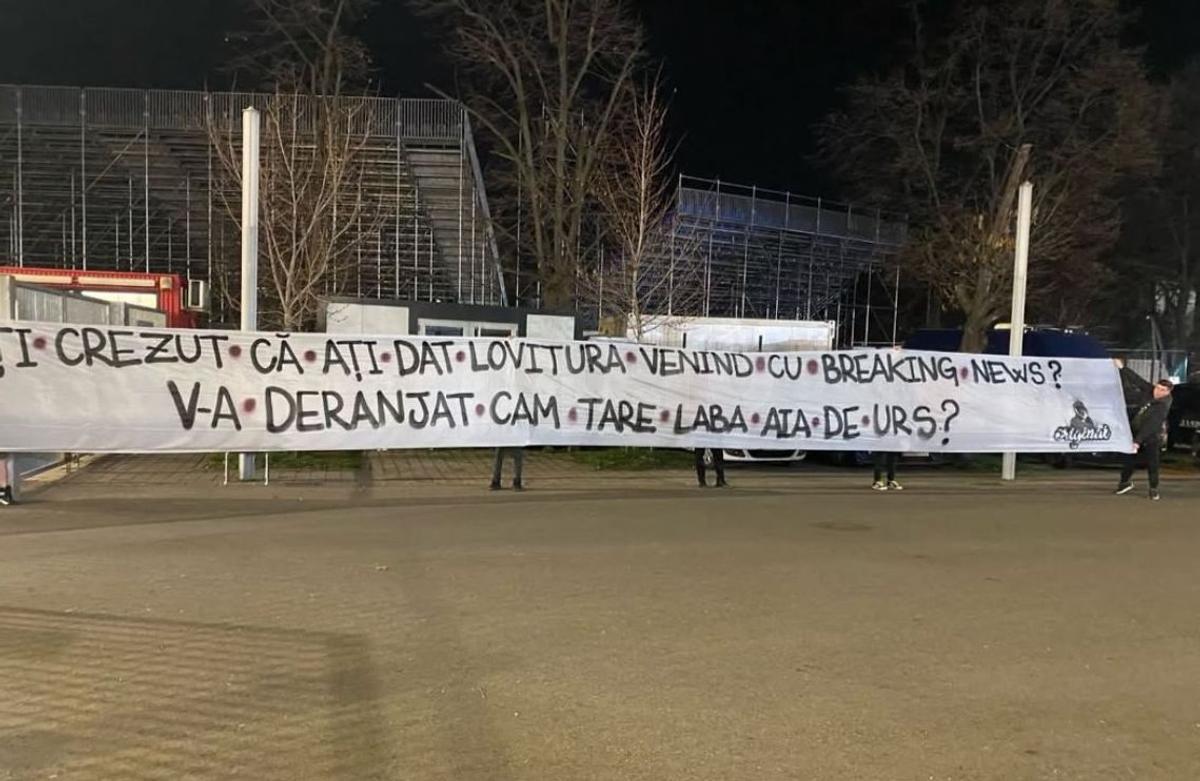 ȚI•CREZUT•CĂ•AȚI•DAT•LOVITURA•VENIND•CU•BREAKING•NEWS?
V-A•DERANJAT•CAM•TARE•LABA•AIA•DE•URS?
original